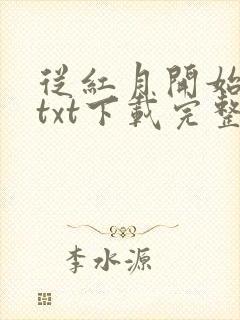 從紅月開始
txt下載完整
李水源